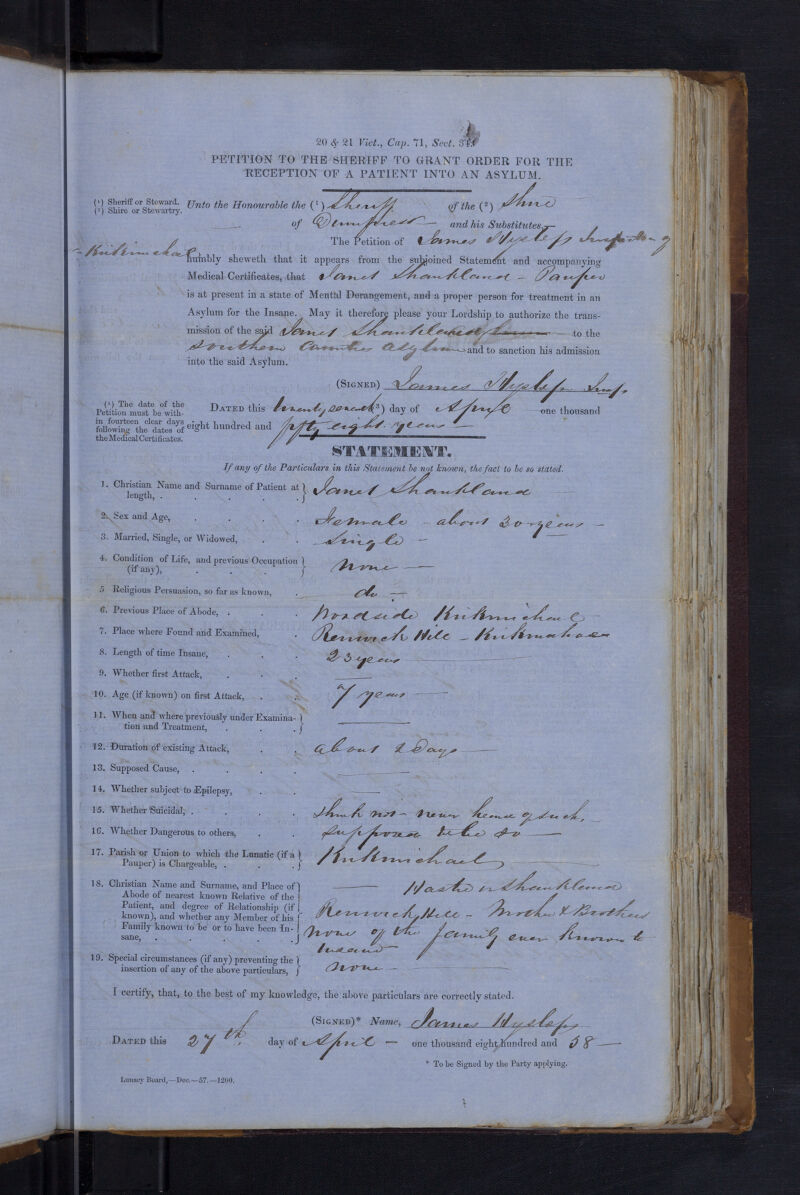 20 & 21 Vict., Cap. 71, Sect. 34
PETITION TO THE SHERIFF TO GRANT ORDER FOR THE
RECEPTION OF A PATIENT INTO AN ASYLUM.
(¹) Sheriff or Steward.
(²) Shire or Stewartry.
Unto the Honourable the (¹) Sheriff of the (²) Shire
of Dumfries and his Substitutes,
The Petition of James Hyslop Inspector of
Kirkmichael
humbly sheweth that it appears from the subjoined Statement and accompanying
Medical Certificates, that Janet Shankland - Pauper
is at present in a state of Mental Derangement, and a proper person for treatment in an
Asylum for the Insane. May it therefore please your Lordship to authorize the trans-
mission of the said Janet Shankland to the
Southern Counties Asylum and to sanction his admission
into the said Asylum.
(SIGNED) James Hyslop Insp.
(³) The date of the
Petition must be with-
in fourteen clear days
following the dates of
the Medical Certificates.
DATED this twenty seventh (³) day of April one thousand
eight hundred and fifty eight years
STATEMENT.
If any of the Particulars in this Statement be not known, the fact to be so stated.
1. Christian Name and Surname of Patient at length, . Janet Shankland
2. Sex and Age, Female - about 30 years
3. Married, Single, or Widowed, Single
4. Condition of Life, and previous Occupation (if any), None
5 Religious Persuasion, so far as known, do
6. Previous Place of Abode, . Woodside Kirkmichael
7. Place where Found and Examined, Renwick Hill - Kirkmahoe
8. Length of time Insane, 23 years
9. Whether first Attack, —
10. Age (if known) on first Attack, 7 years
11. When and where previously under Examina-
tion and Treatment, —
12. Duration of existing Attack, about 2 Days
13. Supposed Cause, . —
14. Whether subject to Epilepsy, —
15. Whether Suicidal, . think not - never heard of such.
16. Whether Dangerous to others, supposed to be so
17. Parish or Union to which the Lunatic (if a
Pauper) is Chargeable, . Kirkmichael
18. Christian Name and Surname, and Place of
Abode of nearest known Relative of the
Patient, and degree of Relationship (if
known), and whether any Member of his
Family known to be or to have been In-
sane, .
Shankland
Renwick Hill - Mother & Brothers
None of the family ever known to
Insane
19. Special circumstances (if any) preventing the
insertion of any of the above particulars, None
I certify, that, to the best of my knowledge, the above particulars are correctly stated.
(SIGNED)* Name, James Hyslop
DATED this 27th day of April — one thousand eight hundred and 58
* To be Signed by the Party applying.
Lunacy Board,—Dec.—57.—1200.